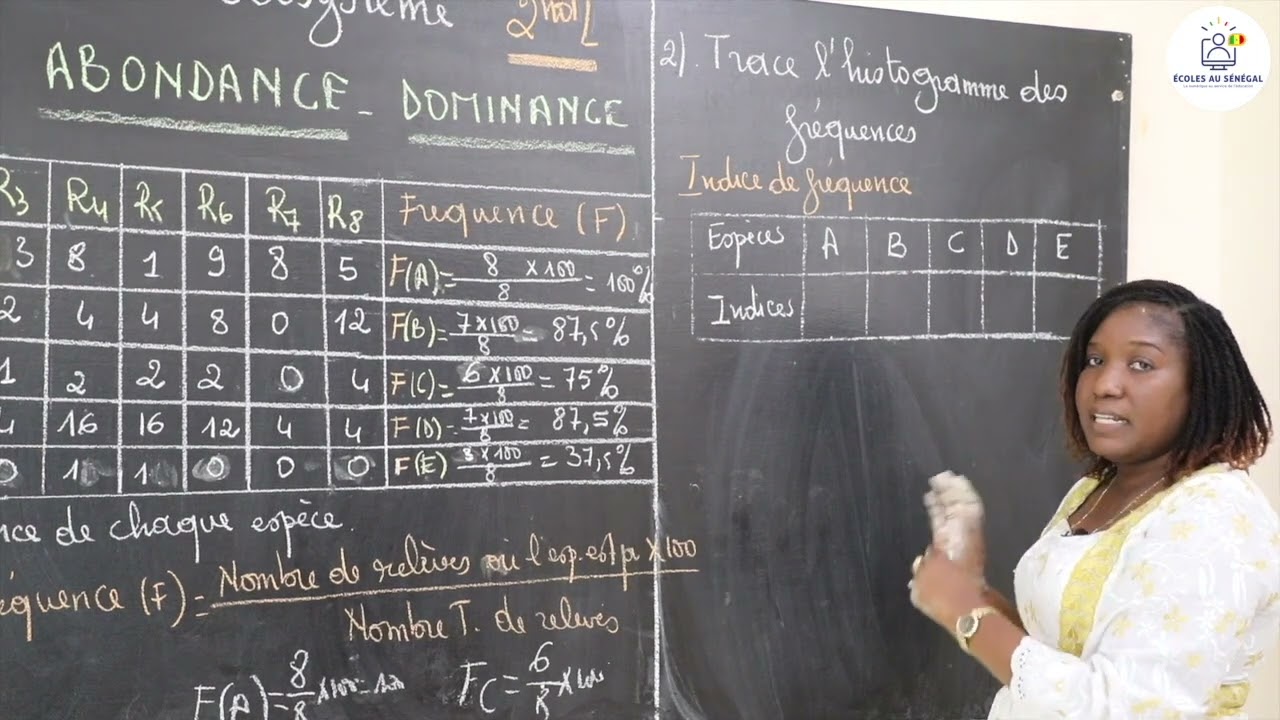 écosystème 2nd L
ABONDANCE - DOMINANCE
R3 R4 R5 R6 R7 R8 Frequence (F)
3 8 1 9 8 5 F(A)= 8 x 100 / 8 = 100%
2 4 4 8 0 12 F(B)= 7 x 100 / 8 = 87,5%
1 2 2 2 0 4 F(C)= 6 x 100 / 8 = 75%
4 16 16 12 4 4 F(D)= 7 x 100 / 8 = 87,5%
0 1 1 0 0 0 F(E) 3 x 100 / 8 = 37,5%
nce de chaque espèce.
équence (F) = Nombre de relèves où l'esp. est p x 100
Nombre T. de relevés
F(A) = 8/8 x 100 = 100 FC = 6/8 x 100
2). Trace l'histogramme des
fréquences
Indice de fréquence
Espèces A B C D E
Indices
ÉCOLES AU SÉNÉGAL
Le numérique au service de l'éducation